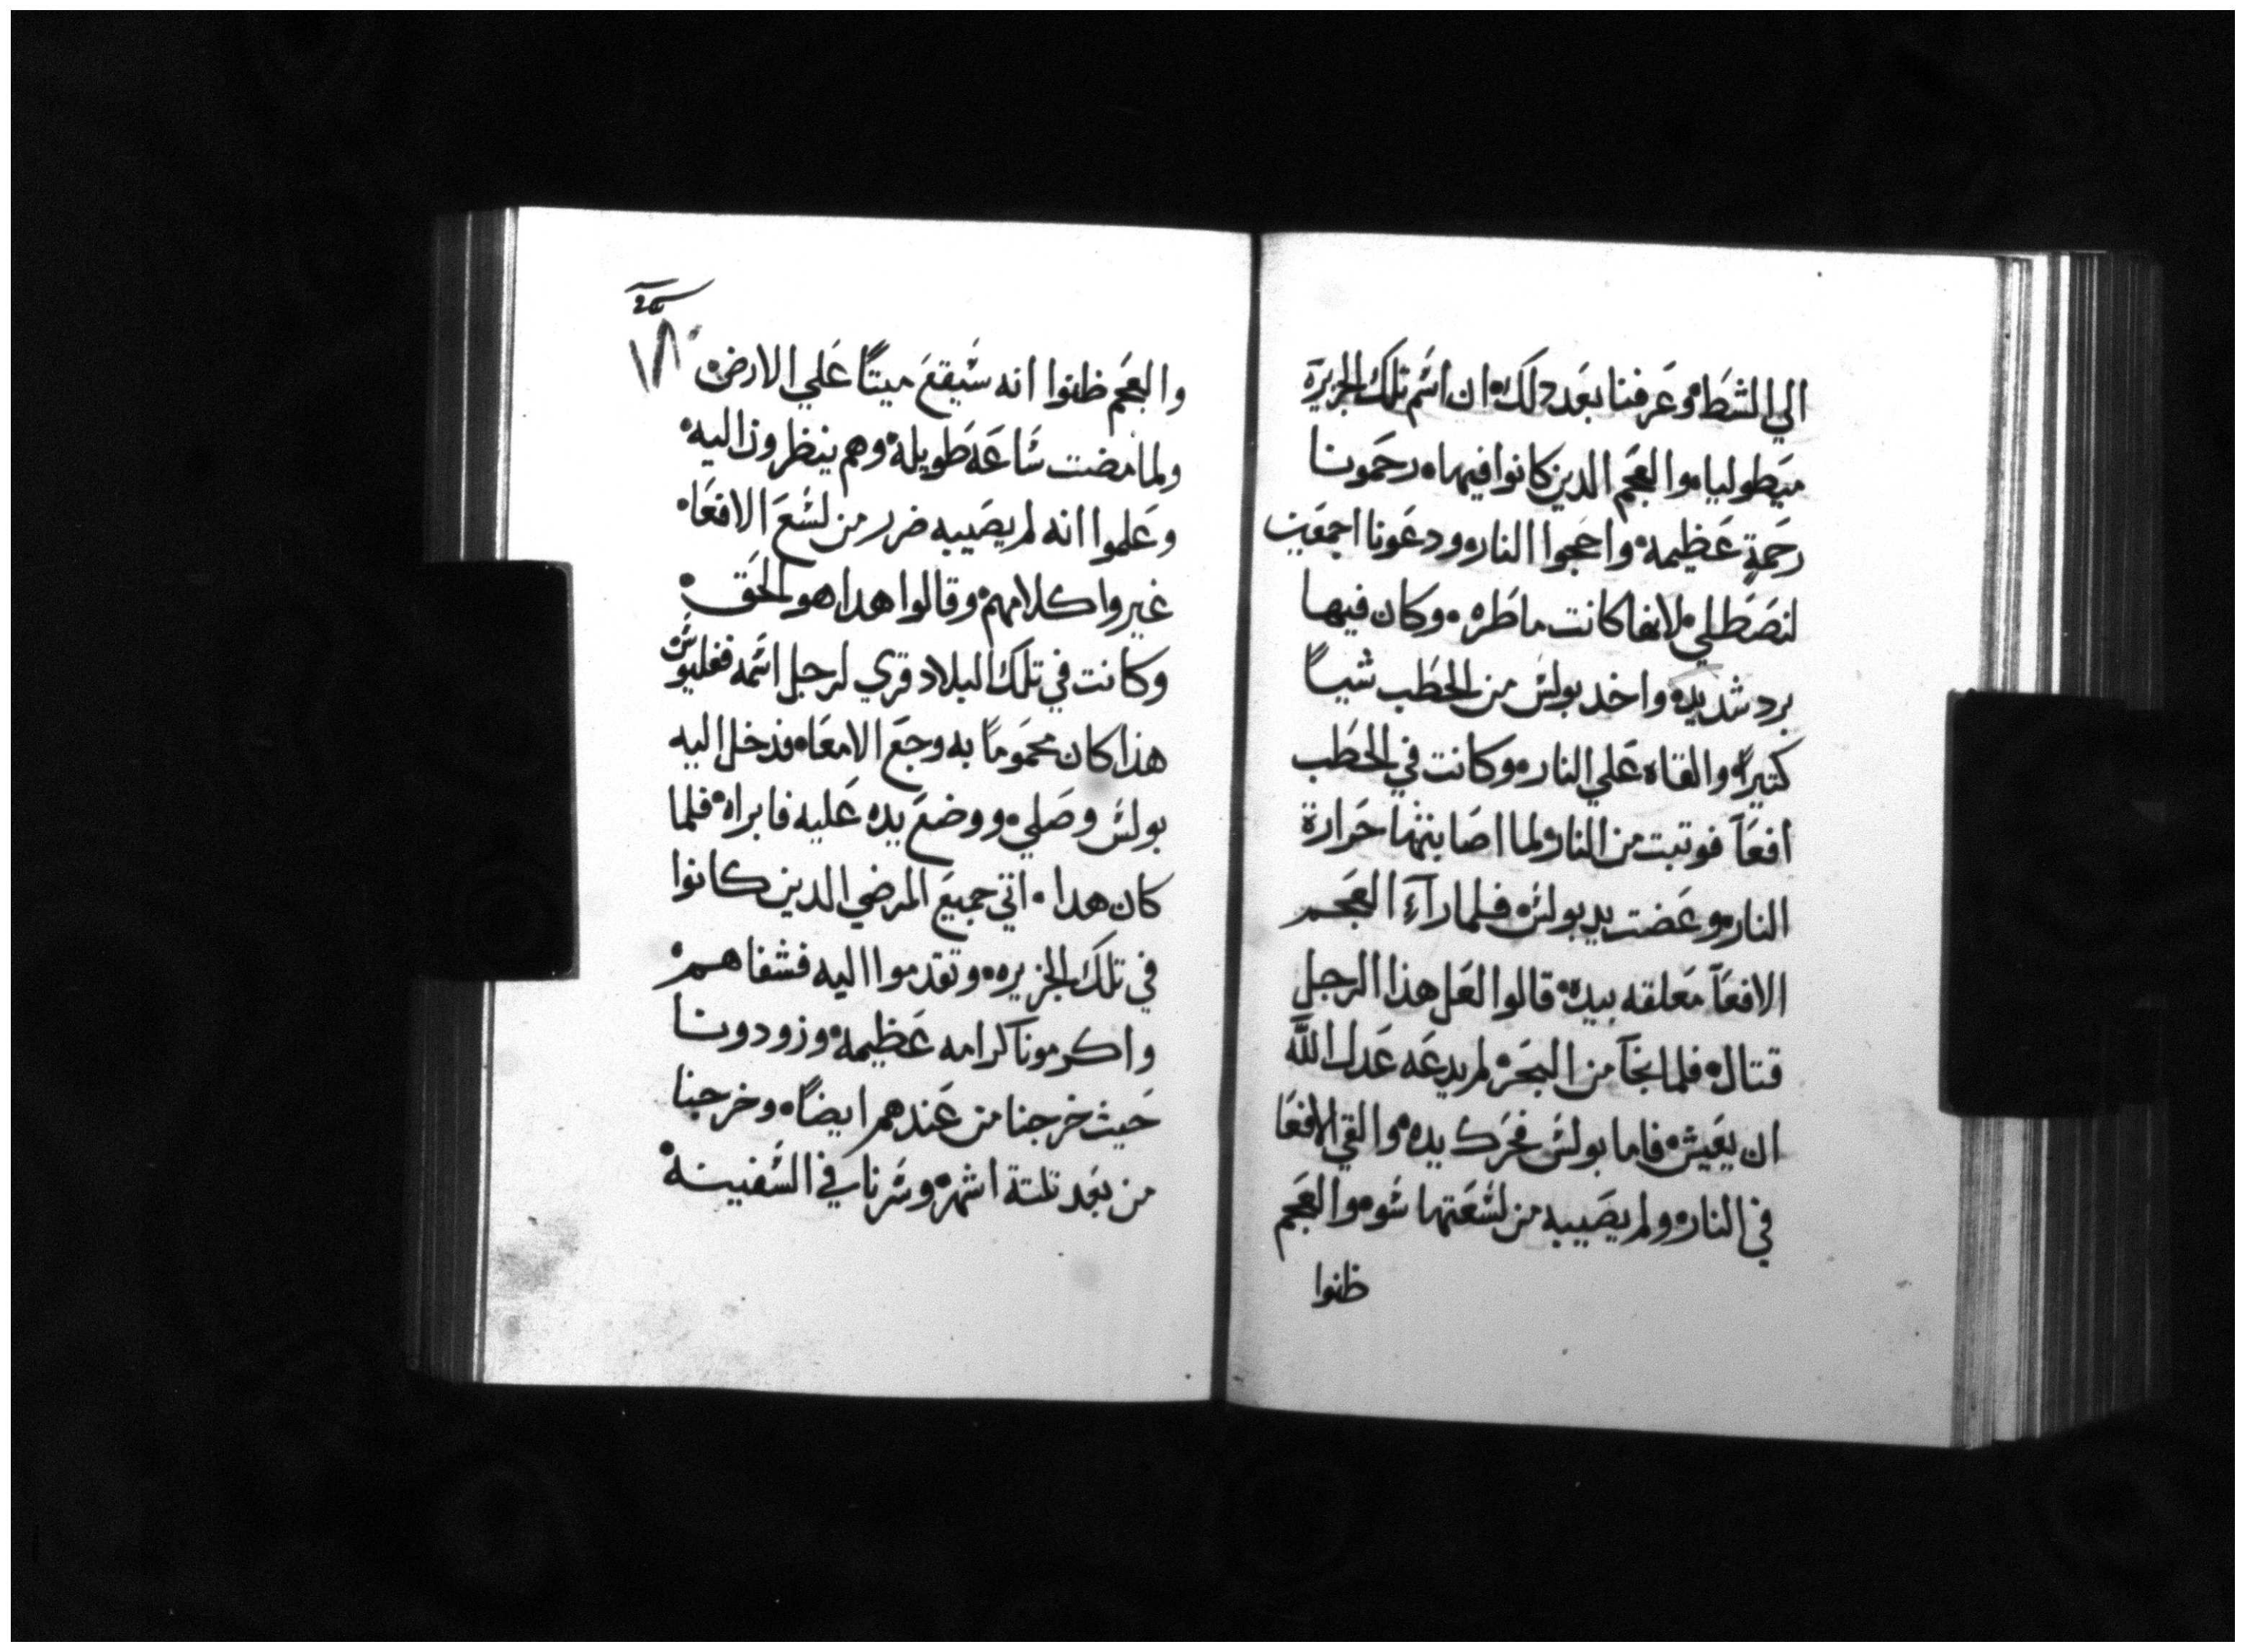 الي الشط۰ وعرفنا بعد دلك۰ ان اسم تلك الجزيرة
ميطوليا۰ والعجم الدين كانوا فيها۰ رحمونا
رحمةٍ عظيمة۰ واججوا النار۰ ودعونا اجمعين
لنصطلي۰ لانها كانت ماطره۰ وكان فيها
برد شديد۰ واخد بولس من الحطب شياً
كتيراً۰ والقاه علي النار۰ وكانت في الحطب
افعآ فوتبت من النار۰ ولما اصابتها حرارة
النار۰ وعضت يد بولس۰ فلما رآء العجم
الافعآ معلقه بيده۰ قالوا لعل هذا الرجل
قتال۰ فلما نجآ من البحر۰ لم يدعه عدل الله
ان يعيش۰ فاما بولس فحرك يده۰ والقي الافعا
في النار۰ ولم يصيبه من لسعتها سوه۰ والعجم
ظنوا
١٨٠
والعجم ظنوا انه سيقع ميتاً علي الارض۰
ولما مضت ساعة طويلة۰ وهم ينظرون اليه۰
وعلموا انه لم يصيبه ضرر من لسع الافعا۰
غيروا كلامهم۰ وقالوا هدا هو الحق۰
وكانت في تلك البلاد قري لرجل اسمه ففليوس
هذا كان محموماً به وجع الامعا۰ فدخل اليه
بولس وصلي۰ ووضع يده عليه فابراه۰ فلما
كان هدا۰ اتي جميع المرضي الدين كانوا
في تلك الجزيره۰ وتقدموا اليه فشفاهم۰
واكرمونا كرامه عظيمة۰ وزودونا
حيث خرجنا من عندهم ايضاً۰ وخرجنا
من بعد تلتة اشهر۰ وسرنا في السفينة۰